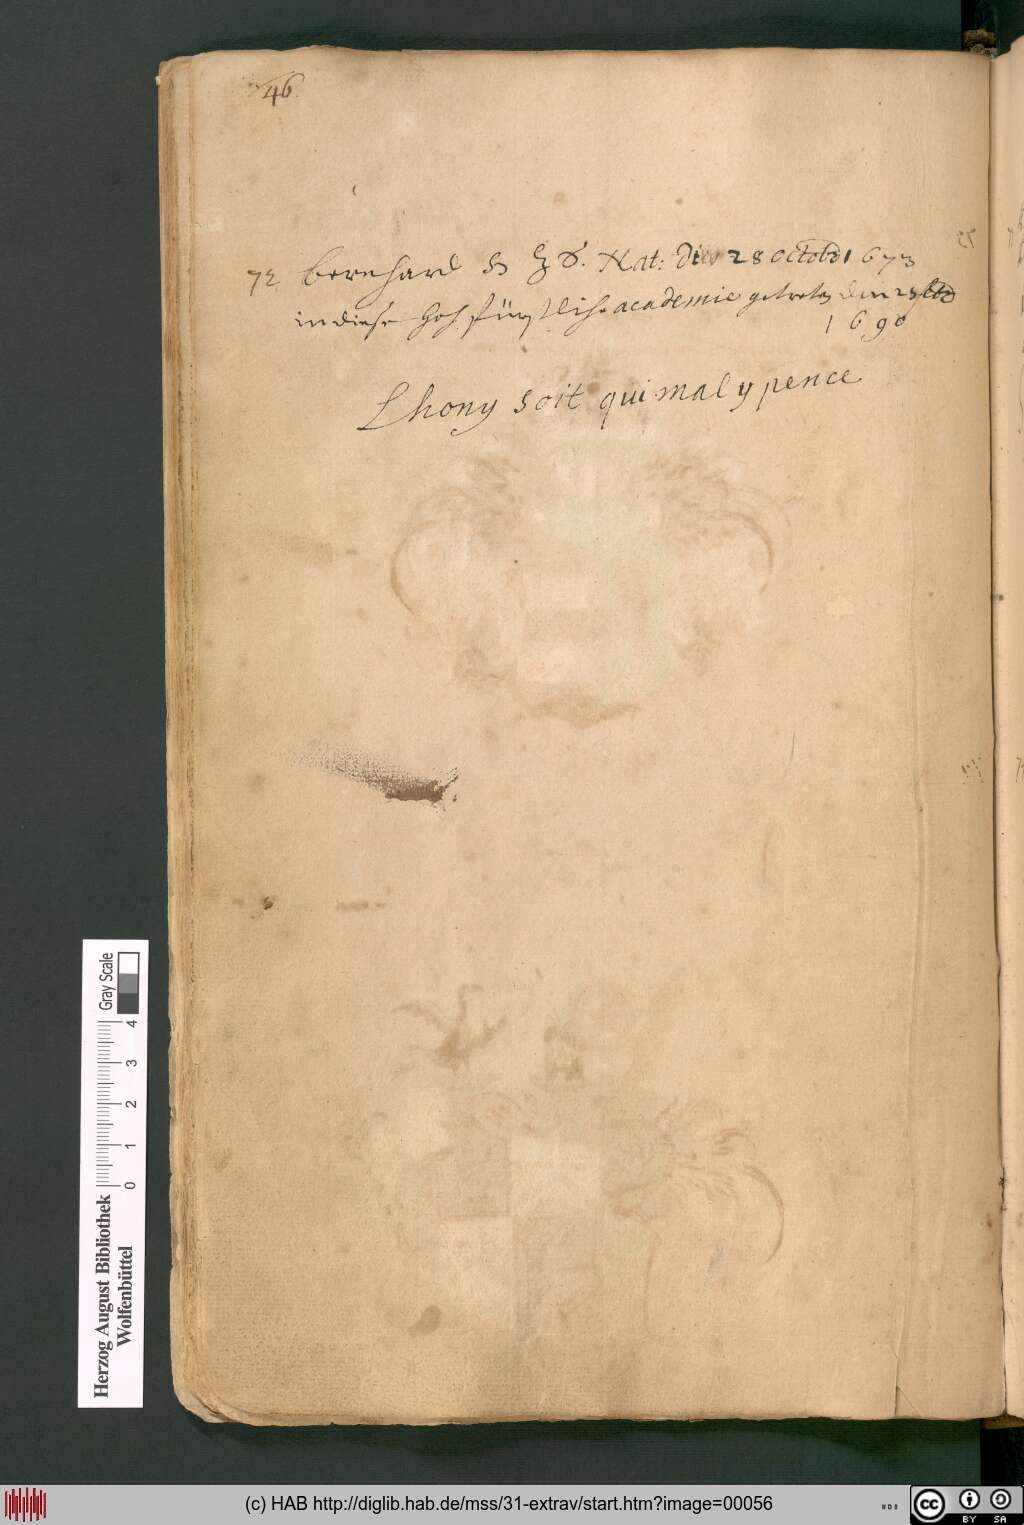 46
72 bernhard H Z S. Nat: Dies 28 octob 1673
in diese hoh fürstlishe academie getreten den 25
1690
Lhony soit qui mal y pence
Gray Scale
0 1 2 3 4
Herzog August Bibliothek
Wolfenbüttel
(c) HAB http://diglib.hab.de/mss/31-extrav/start.htm?image=00056
cc BY SA